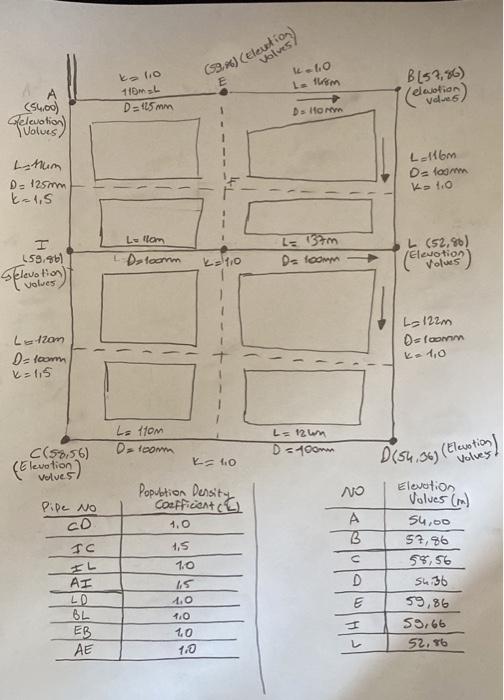 k= 1,0
110m=L
D=125mm
(59,86) (Elevation Values)
E
k=1,0
L= 148m
D= 110mm
B(57,86)
(elevation values)
A
(54,00)
(elevation Values)
L=114m
D= 125mm
k=1,5
F
L=116m
D= 100mm
k= 1,0
I
(59,86)
(elevation values)
L= 110m
D=100mm
k=1,0
L= 137m
D= 100mm
L (52,86)
(Elevation Values)
L=120m
D=100mm
k=1,5
L=122m
D=100mm
k=1,0
C(58,56)
(Elevation values)
L= 110m
D= 100mm
k=1,0
L= 124m
D= 100mm
D(54,36) (Elevation Values)
Pipe No
Popubtion Density Coefficient (k)
CD 1,0
IC 1,5
IL 1,0
AI 1,5
LD 1,0
BL 1,0
EB 1,0
AE 1,0
NO
Elevation Values (m)
A 54,00
B 57,86
C 58,56
D 54,36
E 59,86
I 59,66
L 52,86